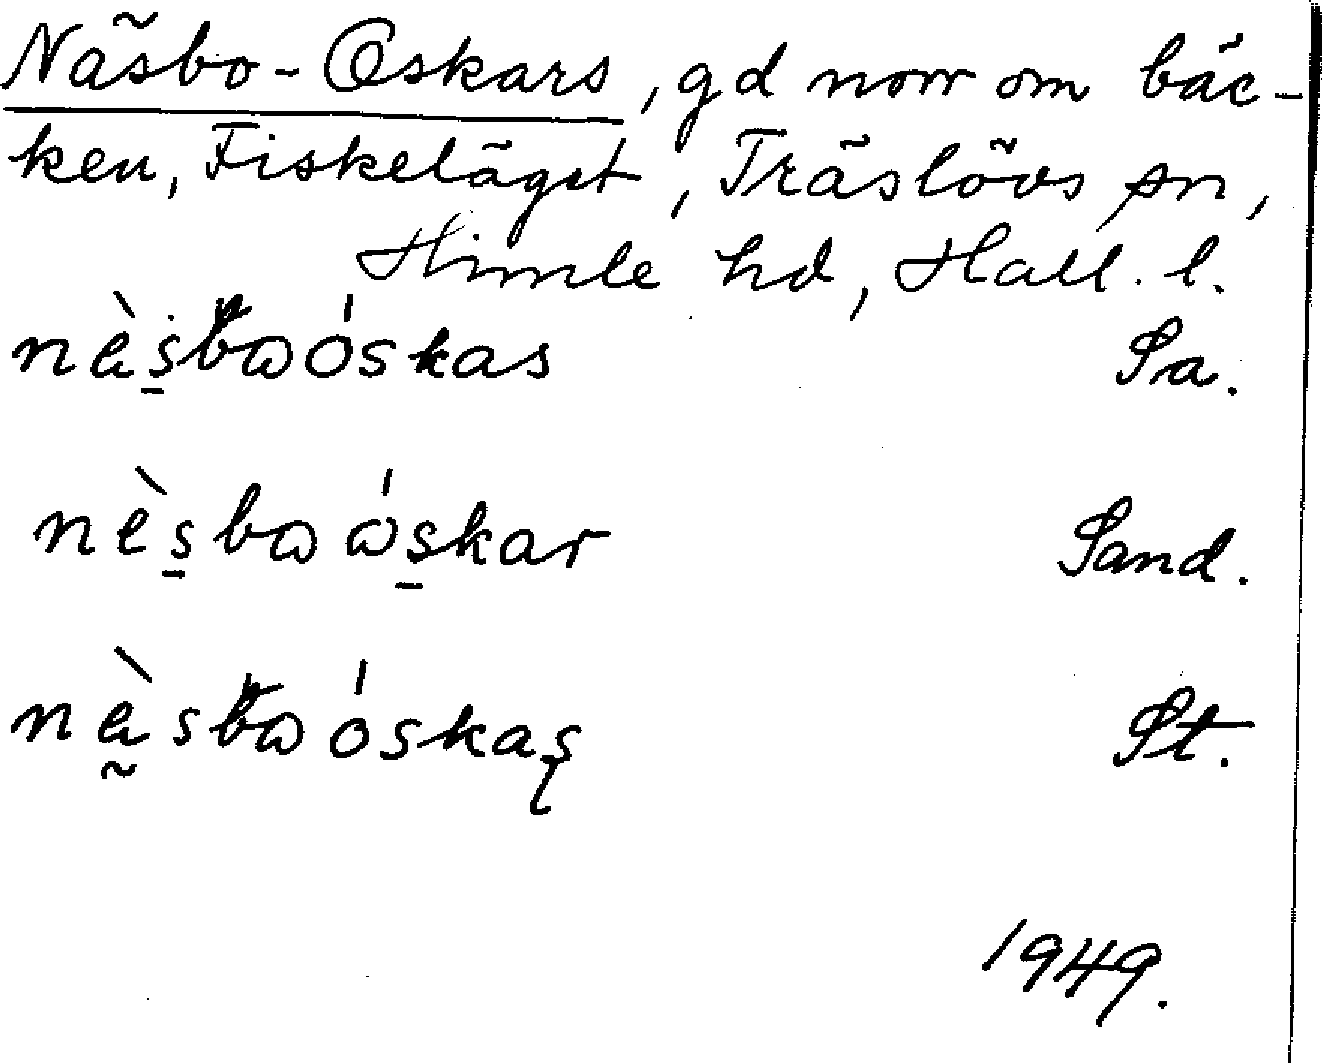 Näsbo-Oskars, gd norr om bäc-
ken, Fiskeläget, Träslövs sn,
Himle hd, Hall. l.
nèsbɷóskas Sa.
nèsbɷ ɷ́skar Sand.
nèsbɷóskaʂ St.
1949.